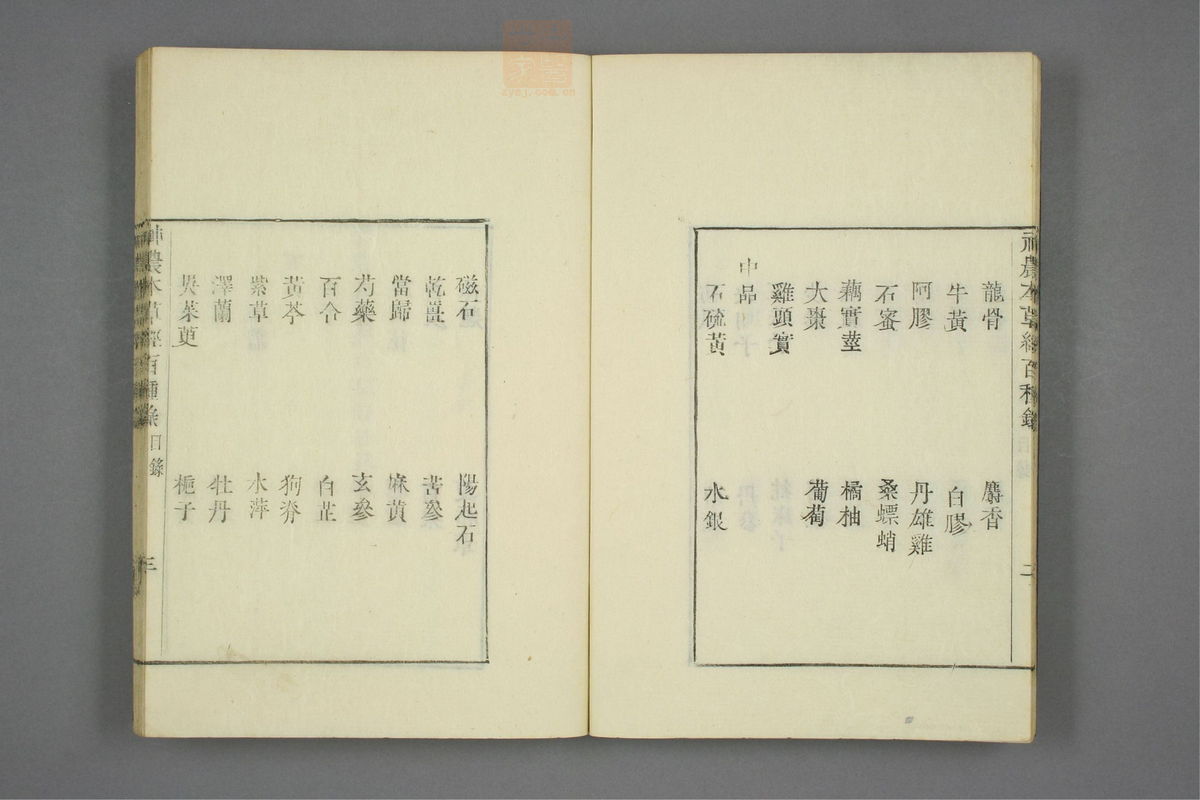 神農本草經百種錄 目錄 二
龍骨 麝香
牛黃 白膠
阿膠 丹雄雞
石蜜 桑螵蛸
藕實莖 橘柚
大棗 葡萄
雞頭實
中品
石硫黃 水銀
磁石 陽起石
乾薑 苦參
當歸 麻黃
芍藥 玄參
百合 白芷
黃芩 狗脊
紫草 水萍
澤蘭 牡丹
吳茱萸 梔子
神農本草經百種錄 目錄 三
zysj.com.cn